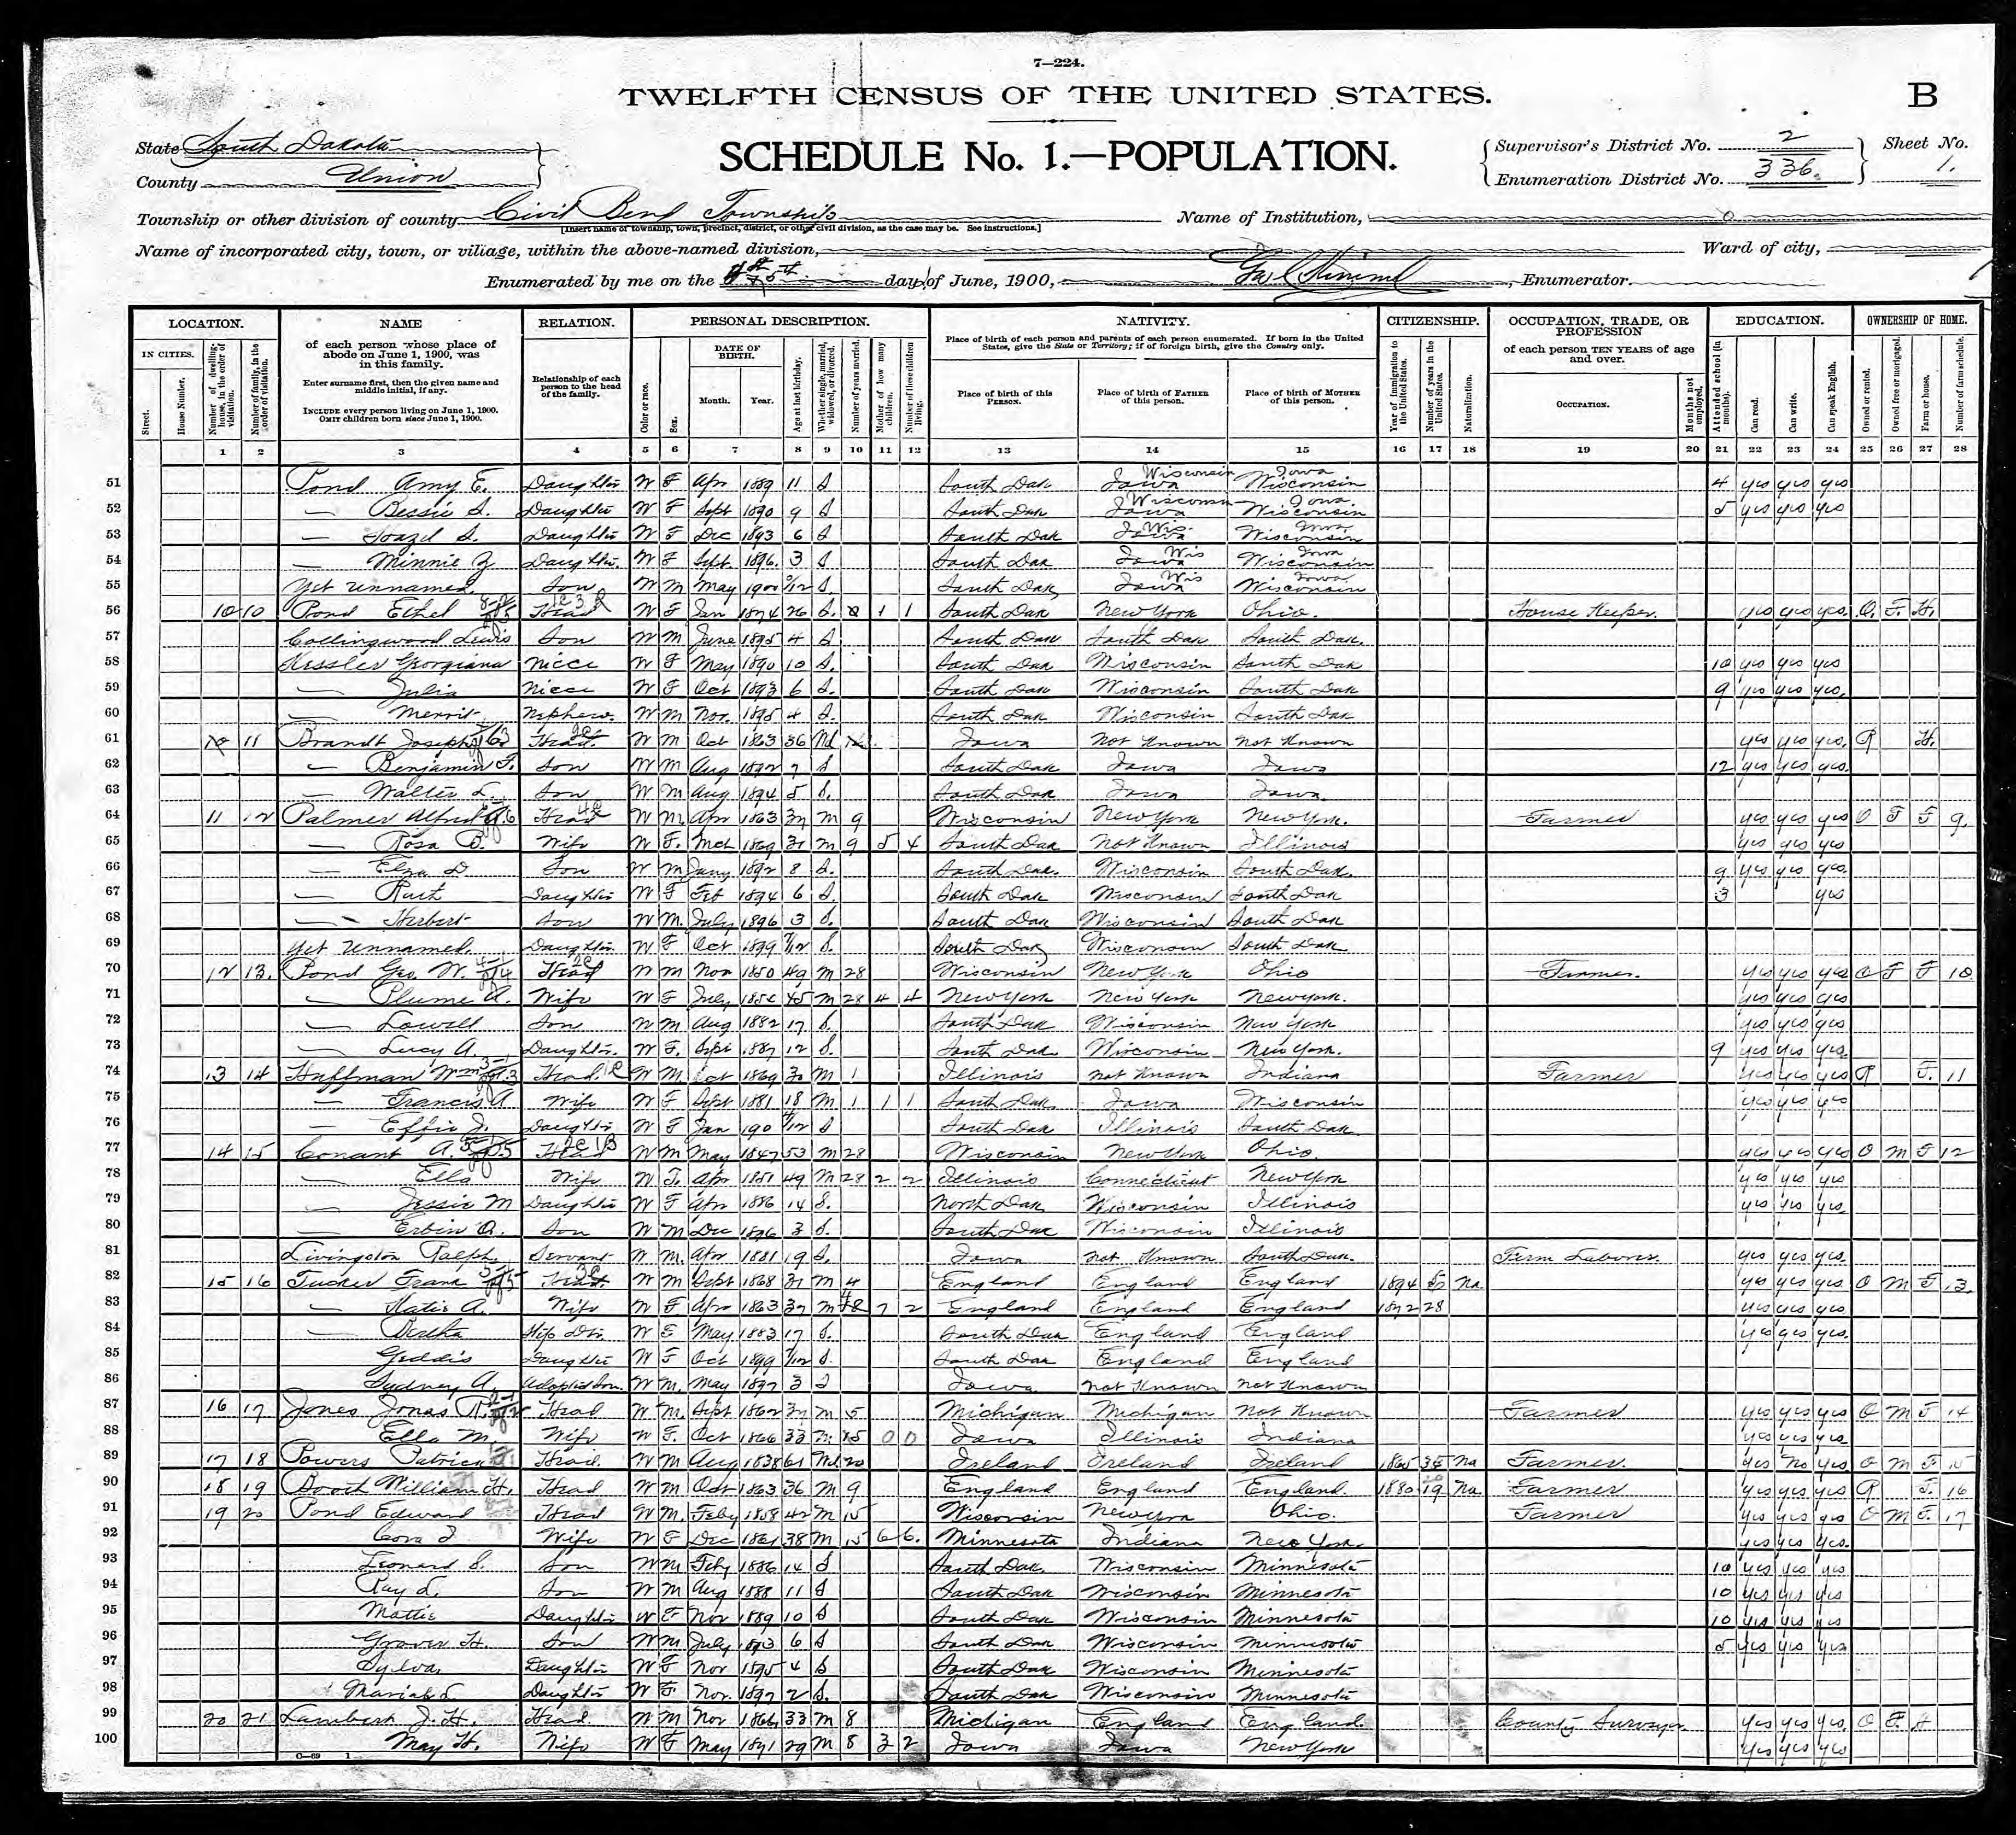 7—224.
TWELFTH CENSUS OF THE UNITED STATES.
B
SCHEDULE No. 1.—POPULATION.
State South Dakota
County Union
Supervisor's District No. 2
Enumeration District No. 336.
Sheet No. 1.
Township or other division of county Civil Bend Township
[Insert name of township, town, precinct, district, or other civil division, as the case may be. See instructions.]
Name of Institution,
Name of incorporated city, town, or village, within the above-named division,
Ward of city,
Enumerated by me on the day of June, 1900, , Enumerator.
LOCATION. NAME RELATION. PERSONAL DESCRIPTION. NATIVITY. CITIZENSHIP. OCCUPATION, TRADE, OR PROFESSION EDUCATION. OWNERSHIP OF HOME.
IN CITIES. Street. House Number. Number of dwelling-house, in the order of visitation. Number of family, in the order of visitation.
of each person whose place of abode on June 1, 1900, was in this family.
Enter surname first, then the given name and middle initial, if any.
INCLUDE every person living on June 1, 1900. OMIT children born since June 1, 1900.
Relationship of each person to the head of the family.
Color or race. Sex. DATE OF BIRTH. Month. Year. Age at last birthday. Whether single, married, widowed, or divorced. Number of years married. Mother of how many children. Number of these children living.
Place of birth of each person and parents of each person enumerated. If born in the United States, give the State or Territory; if of foreign birth, give the Country only.
Place of birth of this PERSON. Place of birth of FATHER of this person. Place of birth of MOTHER of this person.
Year of immigration to the United States. Number of years in the United States. Naturalization.
of each person TEN YEARS of age and over.
OCCUPATION. Months not employed.
Attended school (in months). Can read. Can write. Can speak English. Owned or rented. Owned free or mortgaged. Farm or house. Number of farm schedule.
1 2 3 4 5 6 7 8 9 10 11 12 13 14 15 16 17 18 19 20 21 22 23 24 25 26 27 28
51 Pond Amy E. Daughter W F Apr 1889 11 S South Dak Iowa Wisconsin Wisconsin Iowa 4 yes yes yes
52 — Bessie S. Daughter W F Sept 1890 9 S South Dak Iowa Wisconsin Wisconsin Iowa 5 yes yes yes
53 — Daughter W F Dec 1893 6 S South Dak Iowa Wis. Wisconsin Iowa
54 — Minnie Daughter. W F Sept. 1896. 3 S South Dak Iowa Wis Wisconsin Iowa
55 Yet Unnamed. Son W M May 1900 0/12 S. South Dak Iowa Wis Wisconsin Iowa
56 10 10 Pond Ethel Head W F Jan 1874 26 S. 1 1 South Dak New York Ohio. House Keeper. yes yes yes. O. F. H.
57 Collingwood Lewis Son W M June 1895 4 S South Dak South Dak South Dak.
58 Kessler Georgiana Niece W F May 1890 10 S. South Dak Wisconsin South Dak 10 yes yes yes
59 — Julia Niece W F Oct 1893 6 S. South Dak Wisconsin South Dak 9 yes yes yes.
60 — Merrit Nephew. W M Nov. 1895 4 S. South Dak Wisconsin South Dak
61 11 Brandt Joseph Head. W M Oct 1863 36 Wd Iowa Not Known Not Known yes yes yes. R H.
62 — Benjamin F. Son W M Aug 1892 7 S South Dak Iowa Iowa 12 yes yes yes.
63 — Walter L. Son W M Aug 1894 5 S. South Dak Iowa Iowa
64 11 12 Palmer Alfred Head W M. Apr 1863 37 M 9 Wisconsin New York New York. Farmer yes yes yes O F F 9.
65 — Rosa B. Wife W F. Mch 1869 31 M 9 5 4 South Dak Not Known Illinois yes yes yes
66 — Elza D Son W M Jany 1892 8 S. South Dak. Wisconsin South Dak. 9 yes yes yes.
67 — Ruth Daughter W F Feb 1894 6 S. South Dak Wisconsin South Dak 3 yes
68 — Herbert Son W M. July 1896 3 S. South Dak Wisconsin South Dak
69 Yet Unnamed. Daughter. W F Oct 1899 7/12 S. South Dak Wisconsin South Dak
70 12 13. Pond Geo. W. Head W M Nov 1850 49 M 28 Wisconsin New York Ohio Farmer. yes yes yes O F F 10
71 — Plume A. Wife W F July 1854 45 M 28 4 4 New York New York New York. yes yes yes
72 — Lowell Son W M Aug 1882 17 S. South Dak Wisconsin New York yes yes yes
73 — Lucy A. Daughter. W F. Sept 1887 12 S. South Dak Wisconsin New York. 9 yes yes yes.
74 13 14 Huffman Wm Head. W M Oct 1869 30 M 1 Illinois Not Known Indiana Farmer yes yes yes R F. 11
75 — Francis A Wife W F Sept 1881 18 M 1 1 1 South Dak. Iowa Wisconsin yes yes yes
76 — Effie J. Daughter W F Jan 1900 4/12 S South Dak Illinois South Dak.
77 14 15 Conant A. Head W M May 1847 53 M 28 Wisconsin New York Ohio. yes yes yes O M F 12
78 — Ella Wife W F. Apr 1851 49 M 28 2 2 Illinois Connecticut New York yes yes yes
79 — Jessie M Daughter W F Apr 1886 14 S. North Dak Wisconsin Illinois yes yes yes.
80 — Erbin A. Son W M Dec 1896 3 S. South Dak Wisconsin Illinois
81 Livingston Ralph. Servant W M. Apr 1881 19 S. Iowa Not Known South Dak. Farm Laborer. yes yes yes.
82 15 16 Tucker Frank Head W M Sept 1868 31 M 4 England England England 1894 5 Na yes yes yes. O M F 13.
83 — Katie A. Wife W F Apr 1863 37 M 7 2 England England England 1872 28 yes yes yes.
84 — Bertha W F May 1883 17 S. South Dak England England yes yes yes.
85 Geddis Daughter W F Oct 1899 7/12 S. South Dak England England
86 Sydney A. Adopted Son. W M. May 1897 3 S Iowa. Not Known Not Known
87 16 17 Jones Jonas R. Head W M. Sept 1862 37 M 5 Michigan Michigan Not Known Farmer yes yes yes O M F 14
88 Ella M. Wife W F. Oct 1866 33 M 0 0 Iowa Illinois Indiana yes yes yes
89 17 18 Powers Patrick Head. W M Aug 1838 61 Wd. 20 Ireland Ireland Ireland 1865 35 Na Farmer. yes No yes O M F 15
90 18 19 Booth William H. Head W M Oct 1863 36 M 9 England England England. 1880 19 Na Farmer yes yes yes R F. 16
91 19 20 Pond Edward Head W M. Feby 1858 42 M 15 Wisconsin New York Ohio. Farmer yes yes yes O M F. 17
92 Cora J. Wife W F Dec 1861 38 M 15 6 6. Minnesota Indiana New York yes yes yes.
93 Leonard S. Son W M Feby 1886 14 S South Dak. Wisconsin Minnesota 10 yes yes yes
94 Ray L. Son W M Aug 1888 11 S South Dak Wisconsin Minnesota 10 yes yes yes
95 Mattie Daughter W F Nov 1889 10 S South Dak Wisconsin Minnesota 10 yes yes yes
96 Grover H. Son W M July 1893 6 S South Dak Wisconsin Minnesota 5 yes yes yes
97 Sylva, Daughter W F Nov 1895 4 S South Dak Wisconsin Minnesota
98 Mariah L Daughter W F. Nov. 1897 2 S. South Dak Wisconsin Minnesota
99 20 21 Lambert J. H. Head. W M Nov 1866 33 M 8 Michigan England England. County Surveyor yes yes yes. O F.
100 May H. Wife W F May 1871 29 M 8 3 2 Iowa Iowa New York yes yes yes
C—69 1